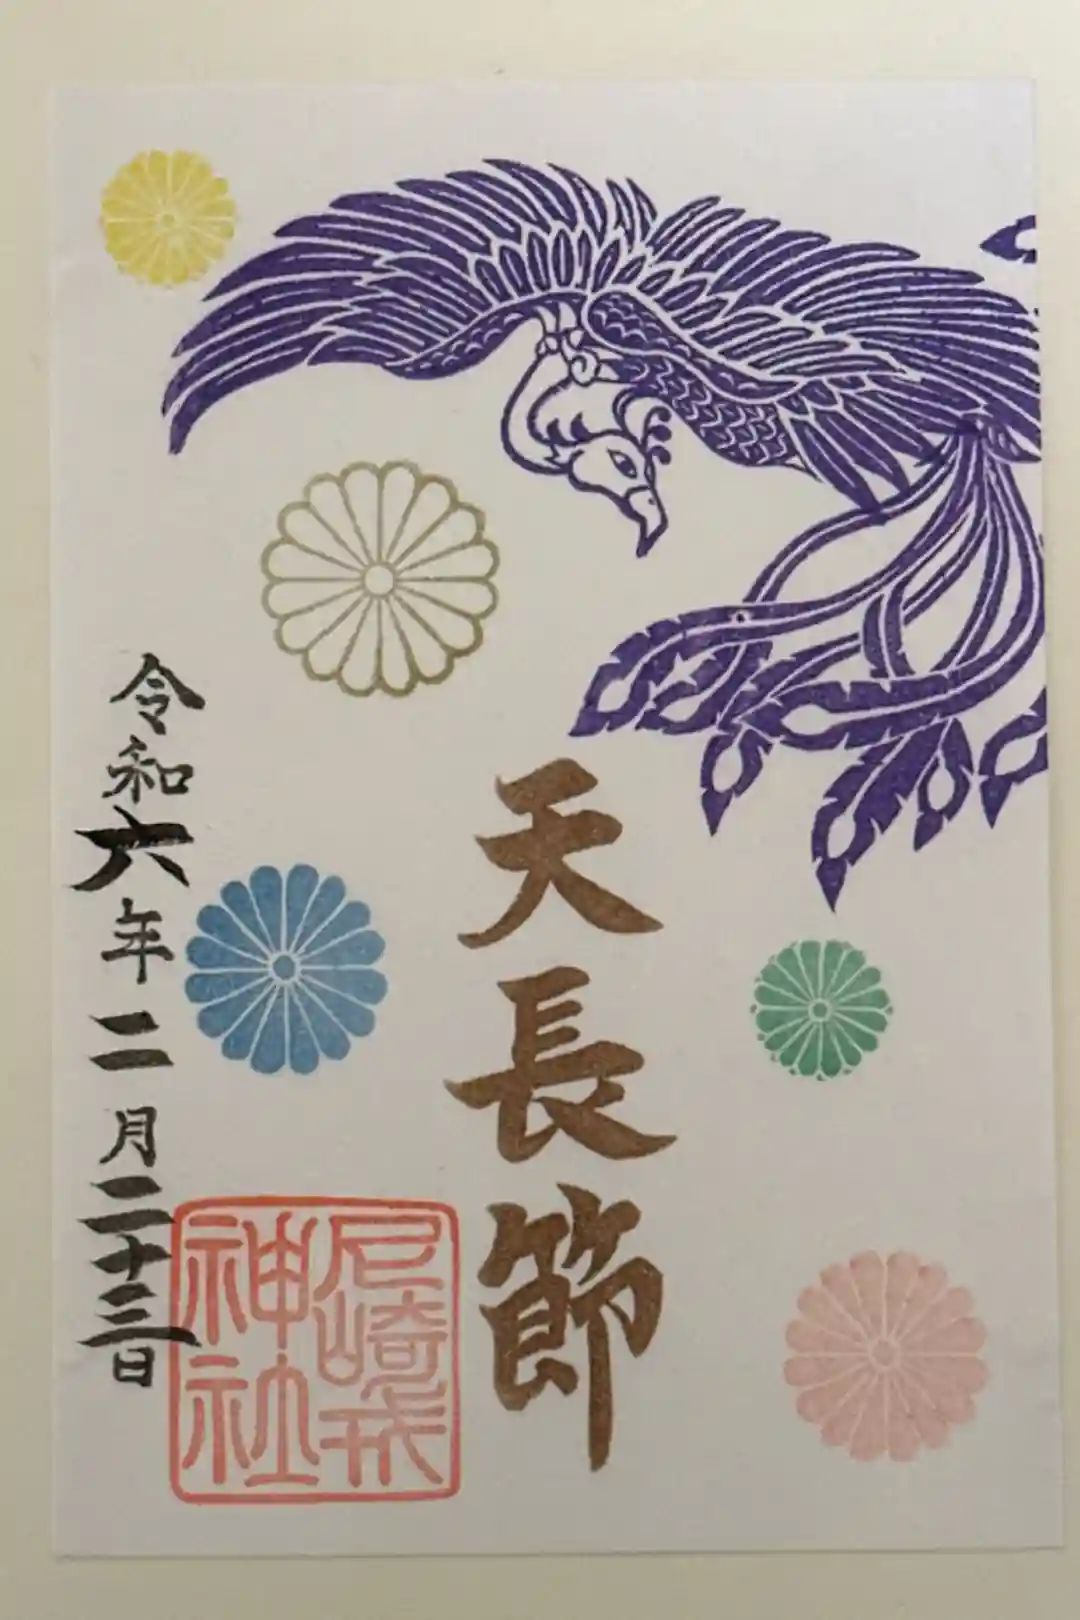 天長節
令和六年二月二十三日
尼崎戎
神社